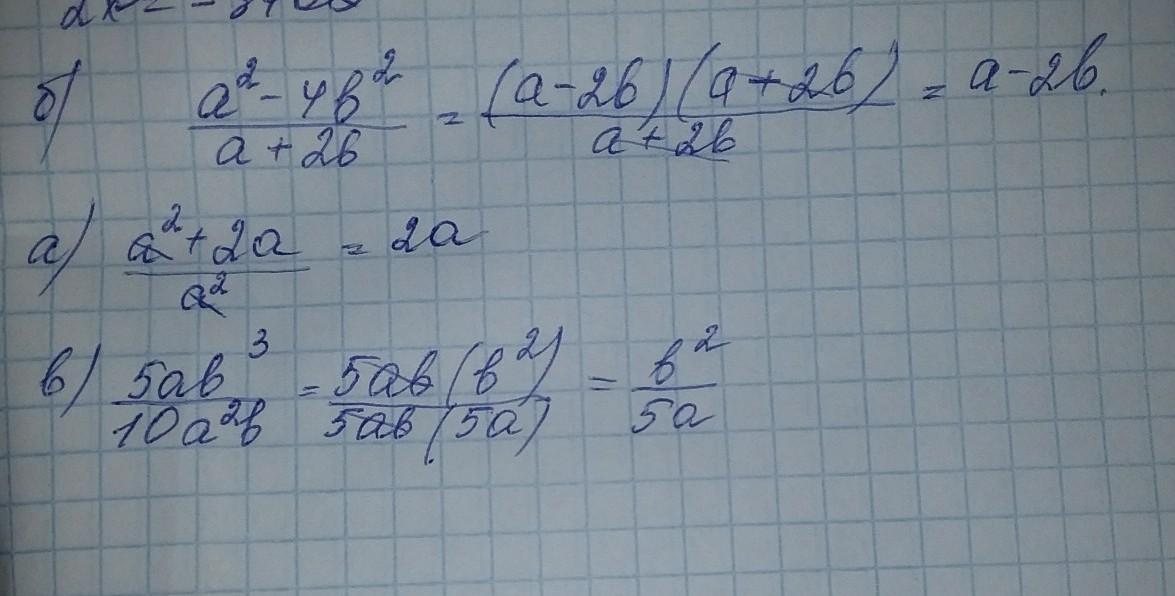 б) (a² - 4b²)/(a + 2b) = ((a - 2b)(a + 2b))/(a + 2b) = a - 2b.
а) (a² + 2a)/a² = 2a
в) 5ab³/10a²b = 5ab(b²)/5ab(5a) = b²/5a